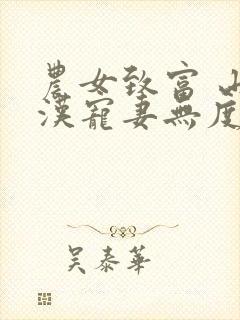 農女致富 山
漢寵妻無度
吴泰華